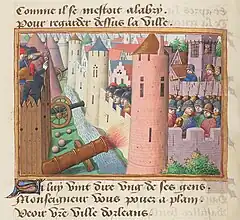 Comme il se mettoit a labry
Pour regarder dessus la ville.
Et luy vint dire ung de ses gens
Monseigneur vous pouez a plain
Veoir vre ville dorleans